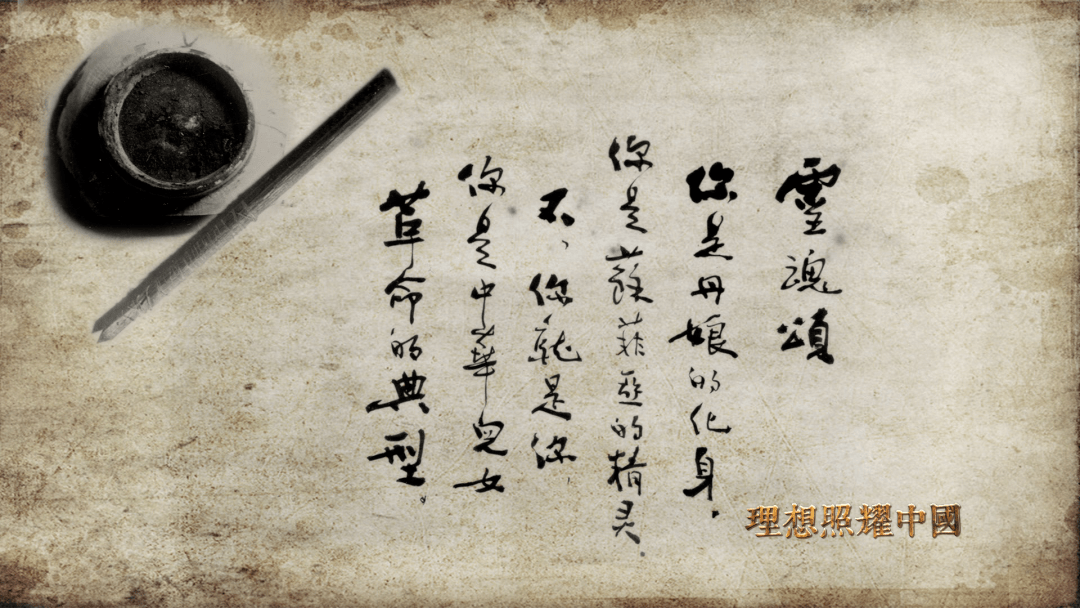 靈魂頌
你是丹娘的化身，
你是蘇菲亞的精灵，
不，你就是你，
你是中華兒女
革命的典型。
理想照耀中國